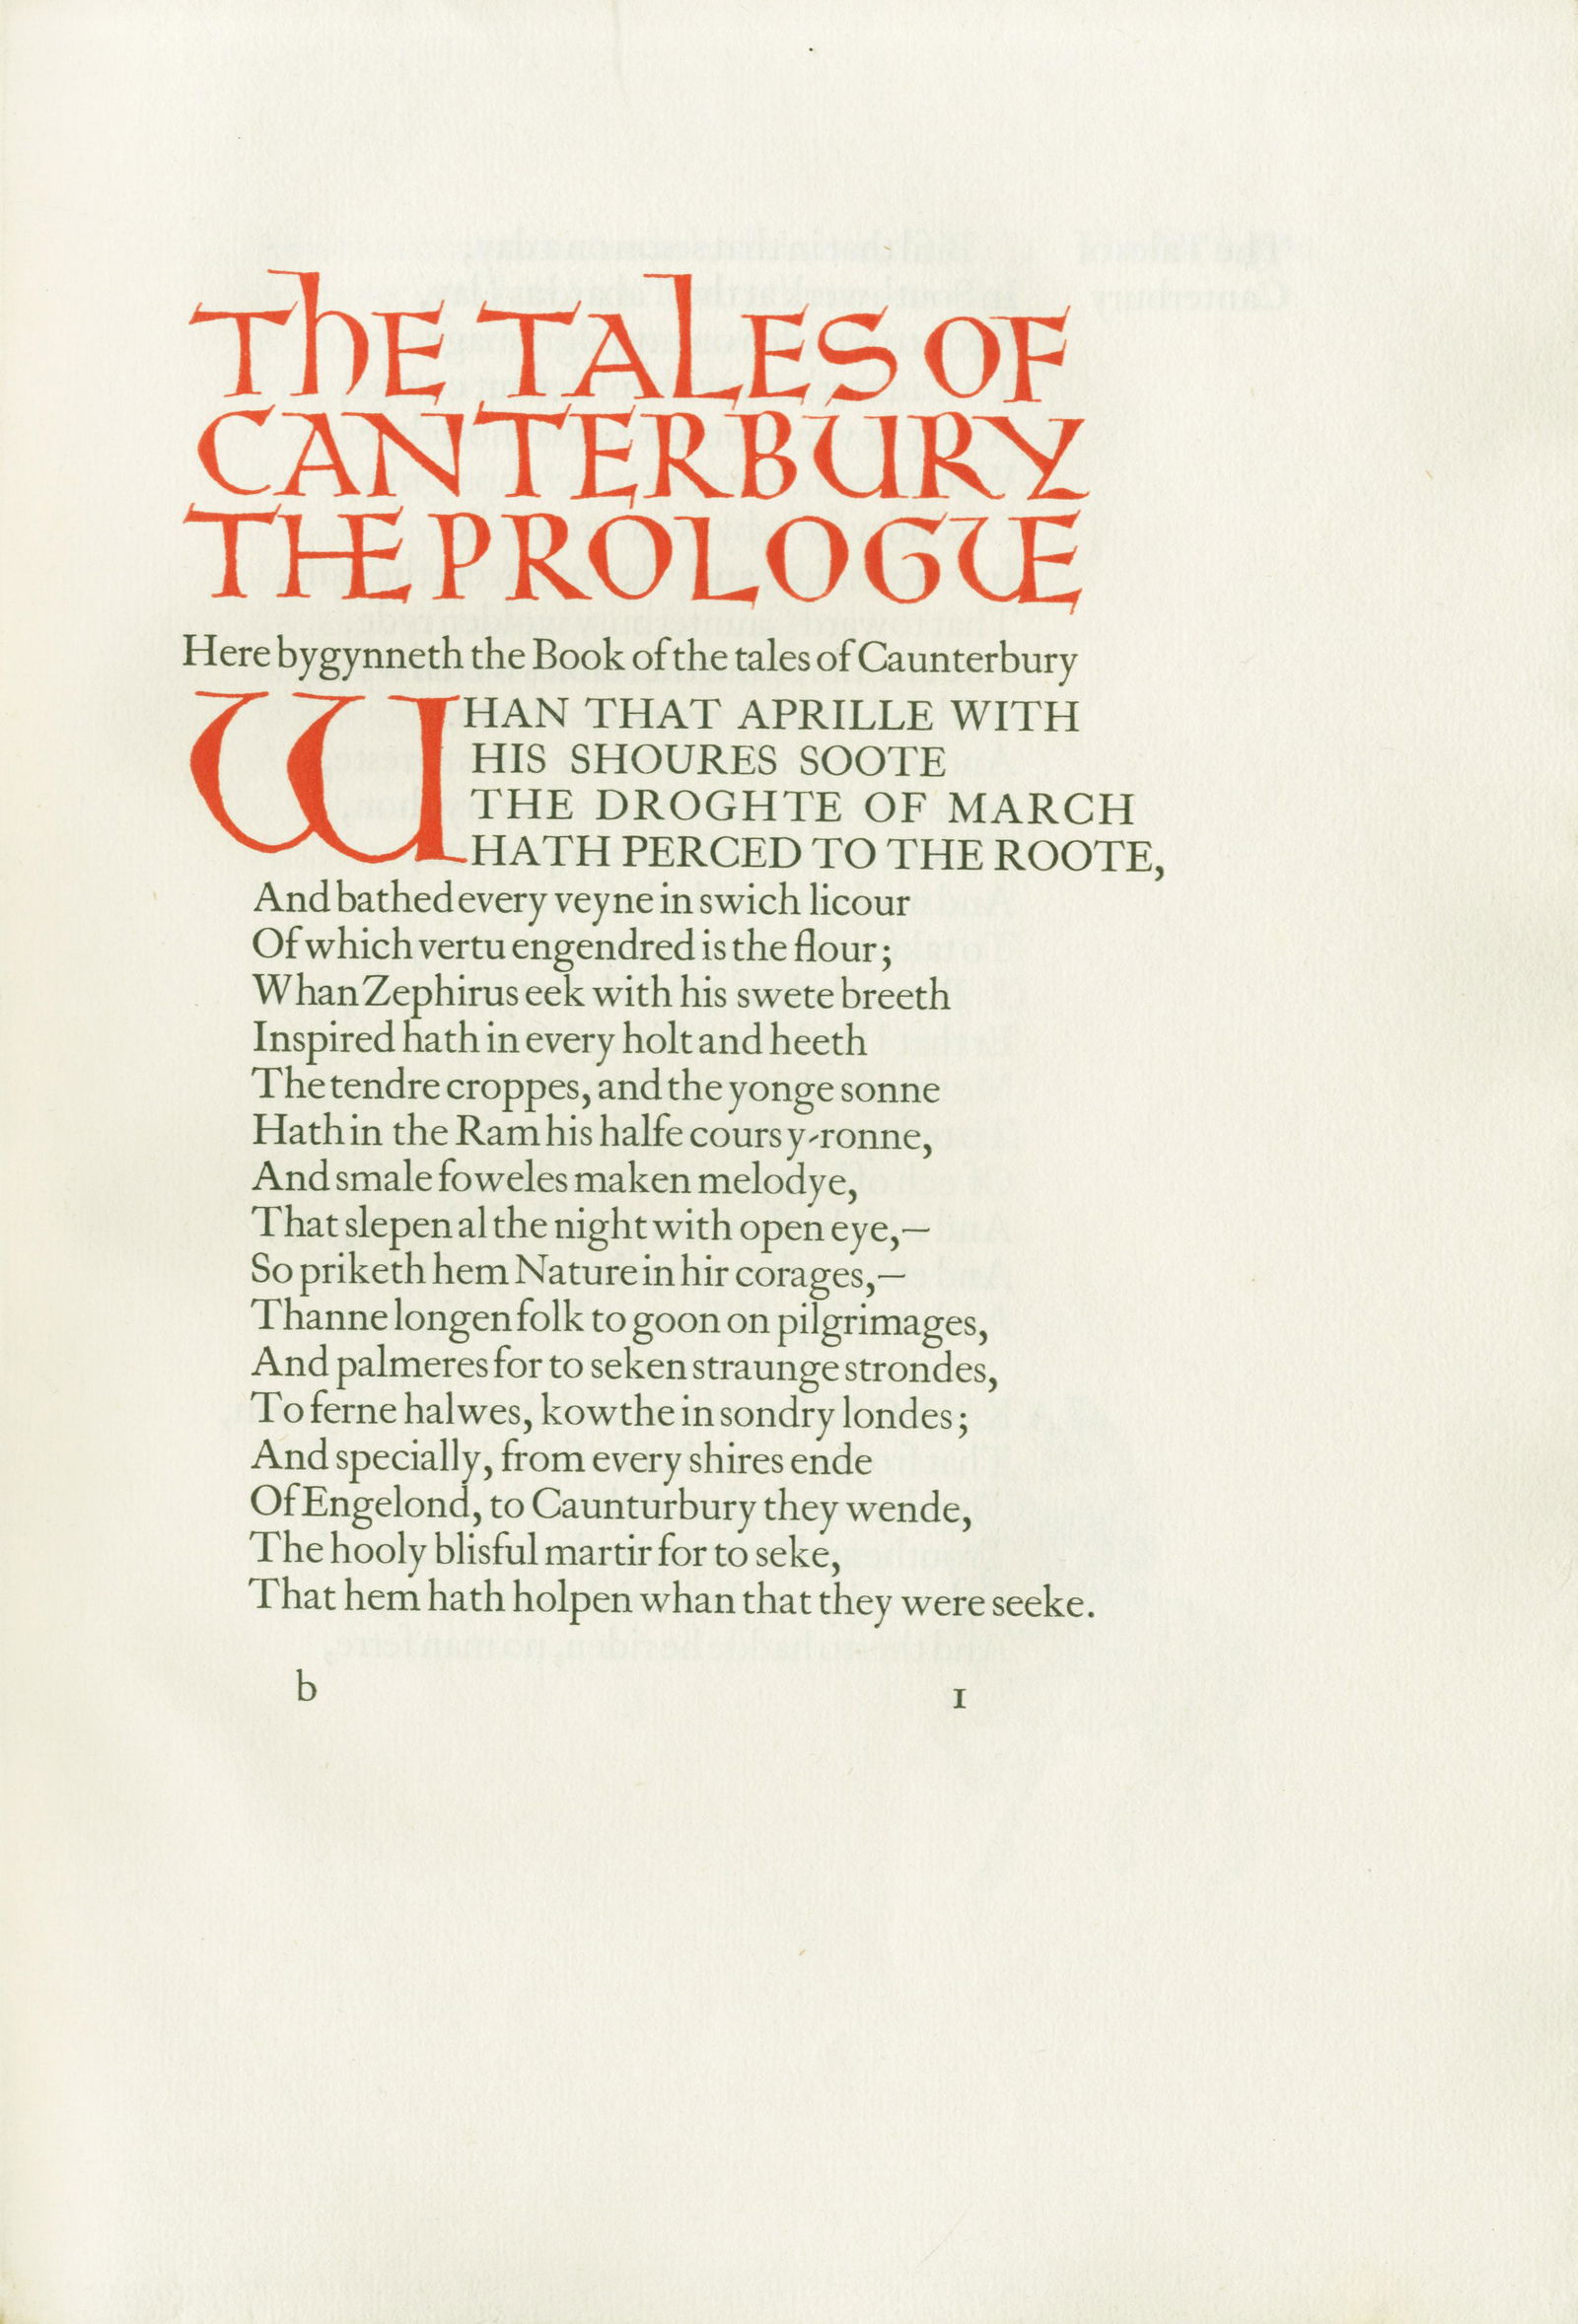 THE TALES OF
CANTERBURY
THE PROLOGUE
Here bygynneth the Book of the tales of Caunterbury
WHAN THAT APRILLE WITH
HIS SHOURES SOOTE
THE DROGHTE OF MARCH
HATH PERCED TO THE ROOTE,
And bathed every veyne in swich licour
Of which vertu engendred is the flour;
Whan Zephirus eek with his swete breeth
Inspired hath in every holt and heeth
The tendre croppes, and the yonge sonne
Hath in the Ram his halfe cours y-ronne,
And smale foweles maken melodye,
That slepen al the night with open eye,—
So priketh hem Nature in hir corages,—
Thanne longen folk to goon on pilgrimages,
And palmeres for to seken straunge strondes,
To ferne halwes, kowthe in sondry londes;
And specially, from every shires ende
Of Engelond, to Caunturbury they wende,
The hooly blisful martir for to seke,
That hem hath holpen whan that they were seeke.
b 1